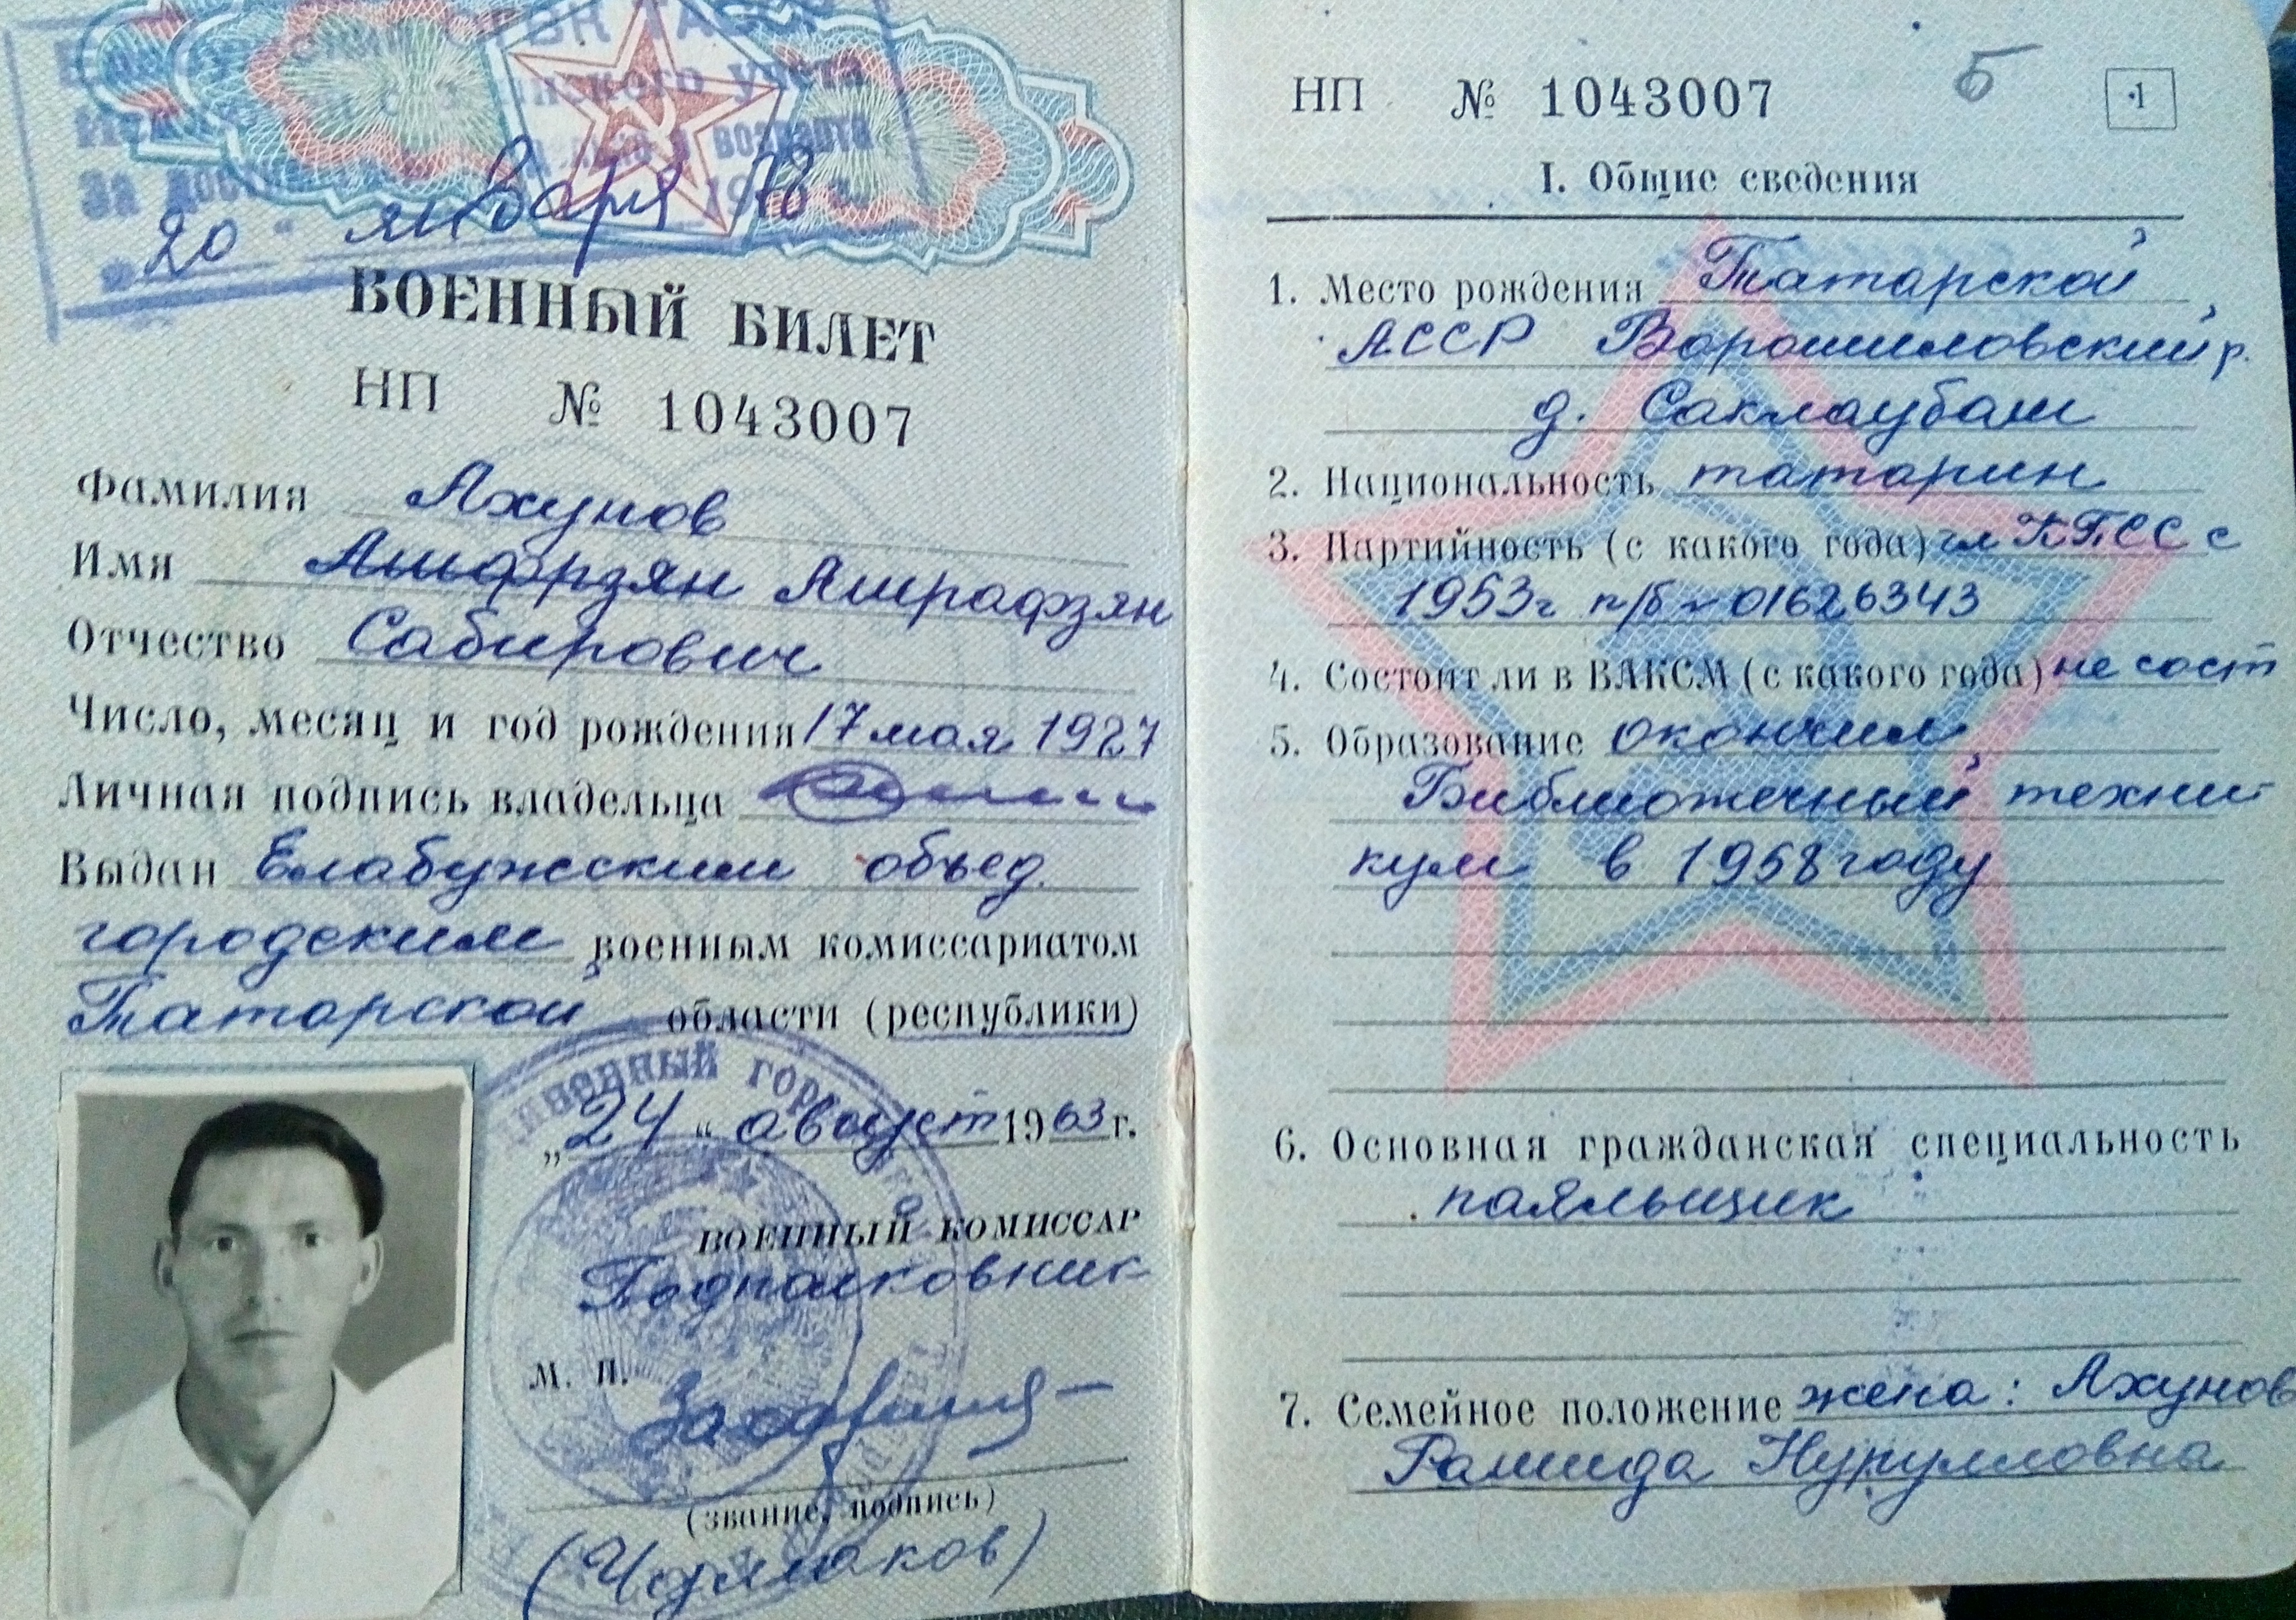 учета
возраста
За
"20" января 1978
ВОЕННЫЙ БИЛЕТ
НП № 1043007
Фамилия Ахунов
Имя Ашфрзян Ашрафзян
Отчество Сабирович
Число, месяц и год рождения 17 мая 1927
Личная подпись владельца
Выдан Елабужским объед.
городским военным комиссариатом
Татарской области (республики)
„24“ август 1963 г.
ВОЕННЫЙ КОМИССАР
Подполковник
М. П.
(звание, подпись)
НП № 1043007
5
1
I. Общие сведения
1. Место рождения Татарской
АССР Ворошиловский р.
д. Саклаубаш
2. Национальность татарин
3. Партийность (с какого года) чл КПСС с
1953г п/б № 01626343
4. Состоит ли в ВЛКСМ (с какого года) не сост
5. Образование окончил
Библиотечный техни
кум в 1958 году
6. Основная гражданская специальность
паяльщик
7. Семейное положение жена: Ахунов
Рашида Нурулловна